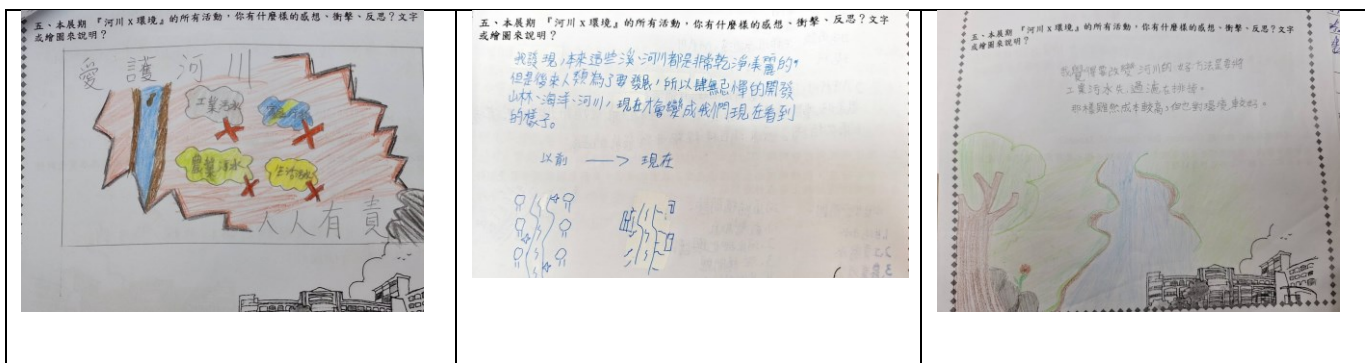 五、本展期 『河川 X 環境』的所有活動,你有什麼樣的感想、衝擊、反思?文字
或繪圖來說明?
愛護河川
工業污水
農業淨水
生活污水
人人有責
五、本展期 『河川 X 環境』的所有活動,你有什麼樣的感想、衝擊、反思?文字
或繪圖來說明?
我發現,本來這些溪、河川都是非常乾淨美麗的。
但是後來人類為了要發展,所以肆無忌憚的開發
山林、海洋、河川,現在才會變成我們現在看到
的樣子。
以前 → 現在
五、本展期 『河川 X 環境』的所有活動,你有什麼樣的感想、衝擊、反思?文字
或繪圖來說明?
我覺得要改變河川的 方法是要將
工業污水先過濾在排後。
那樣雖然成本較高,但也對環境較好。